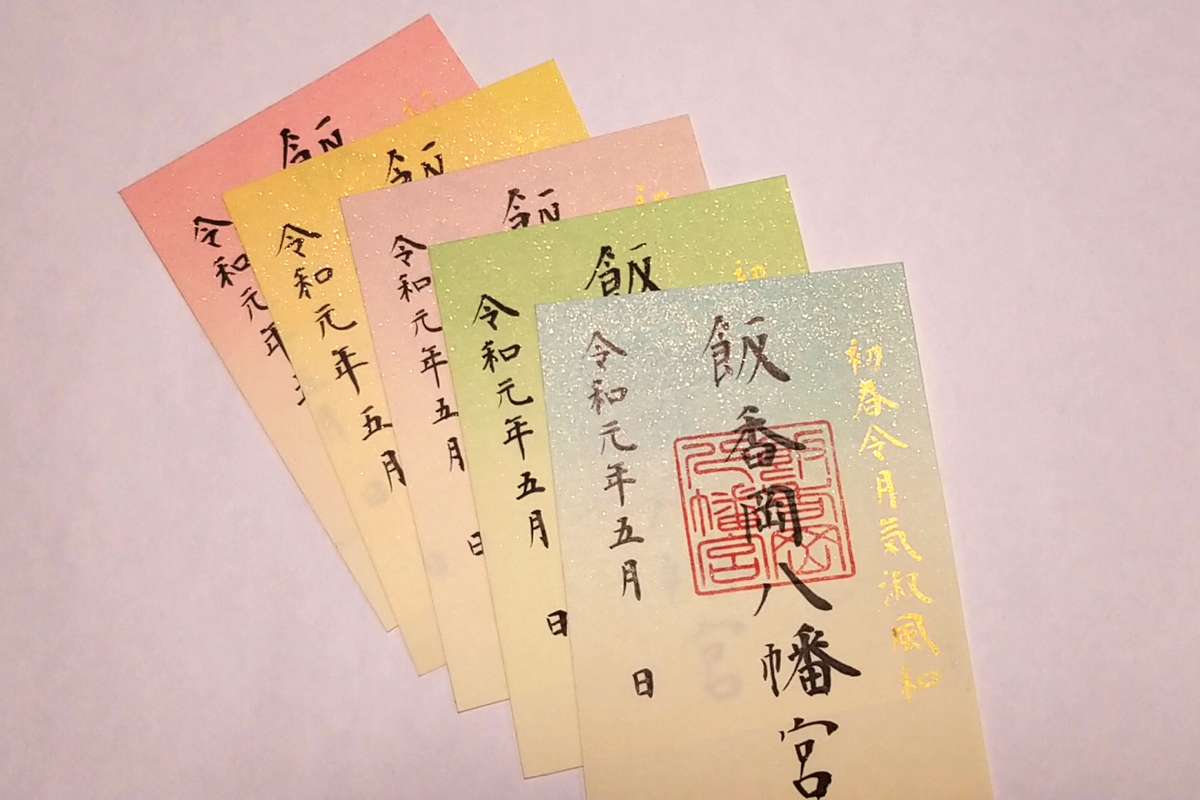 初春令月気淑風和
飯香岡八幡宮
飯香岡
八幡宮
令和元年五月 日
飯
令和元年五月 日
令和元年五月 日
令和元年五月
令和元年